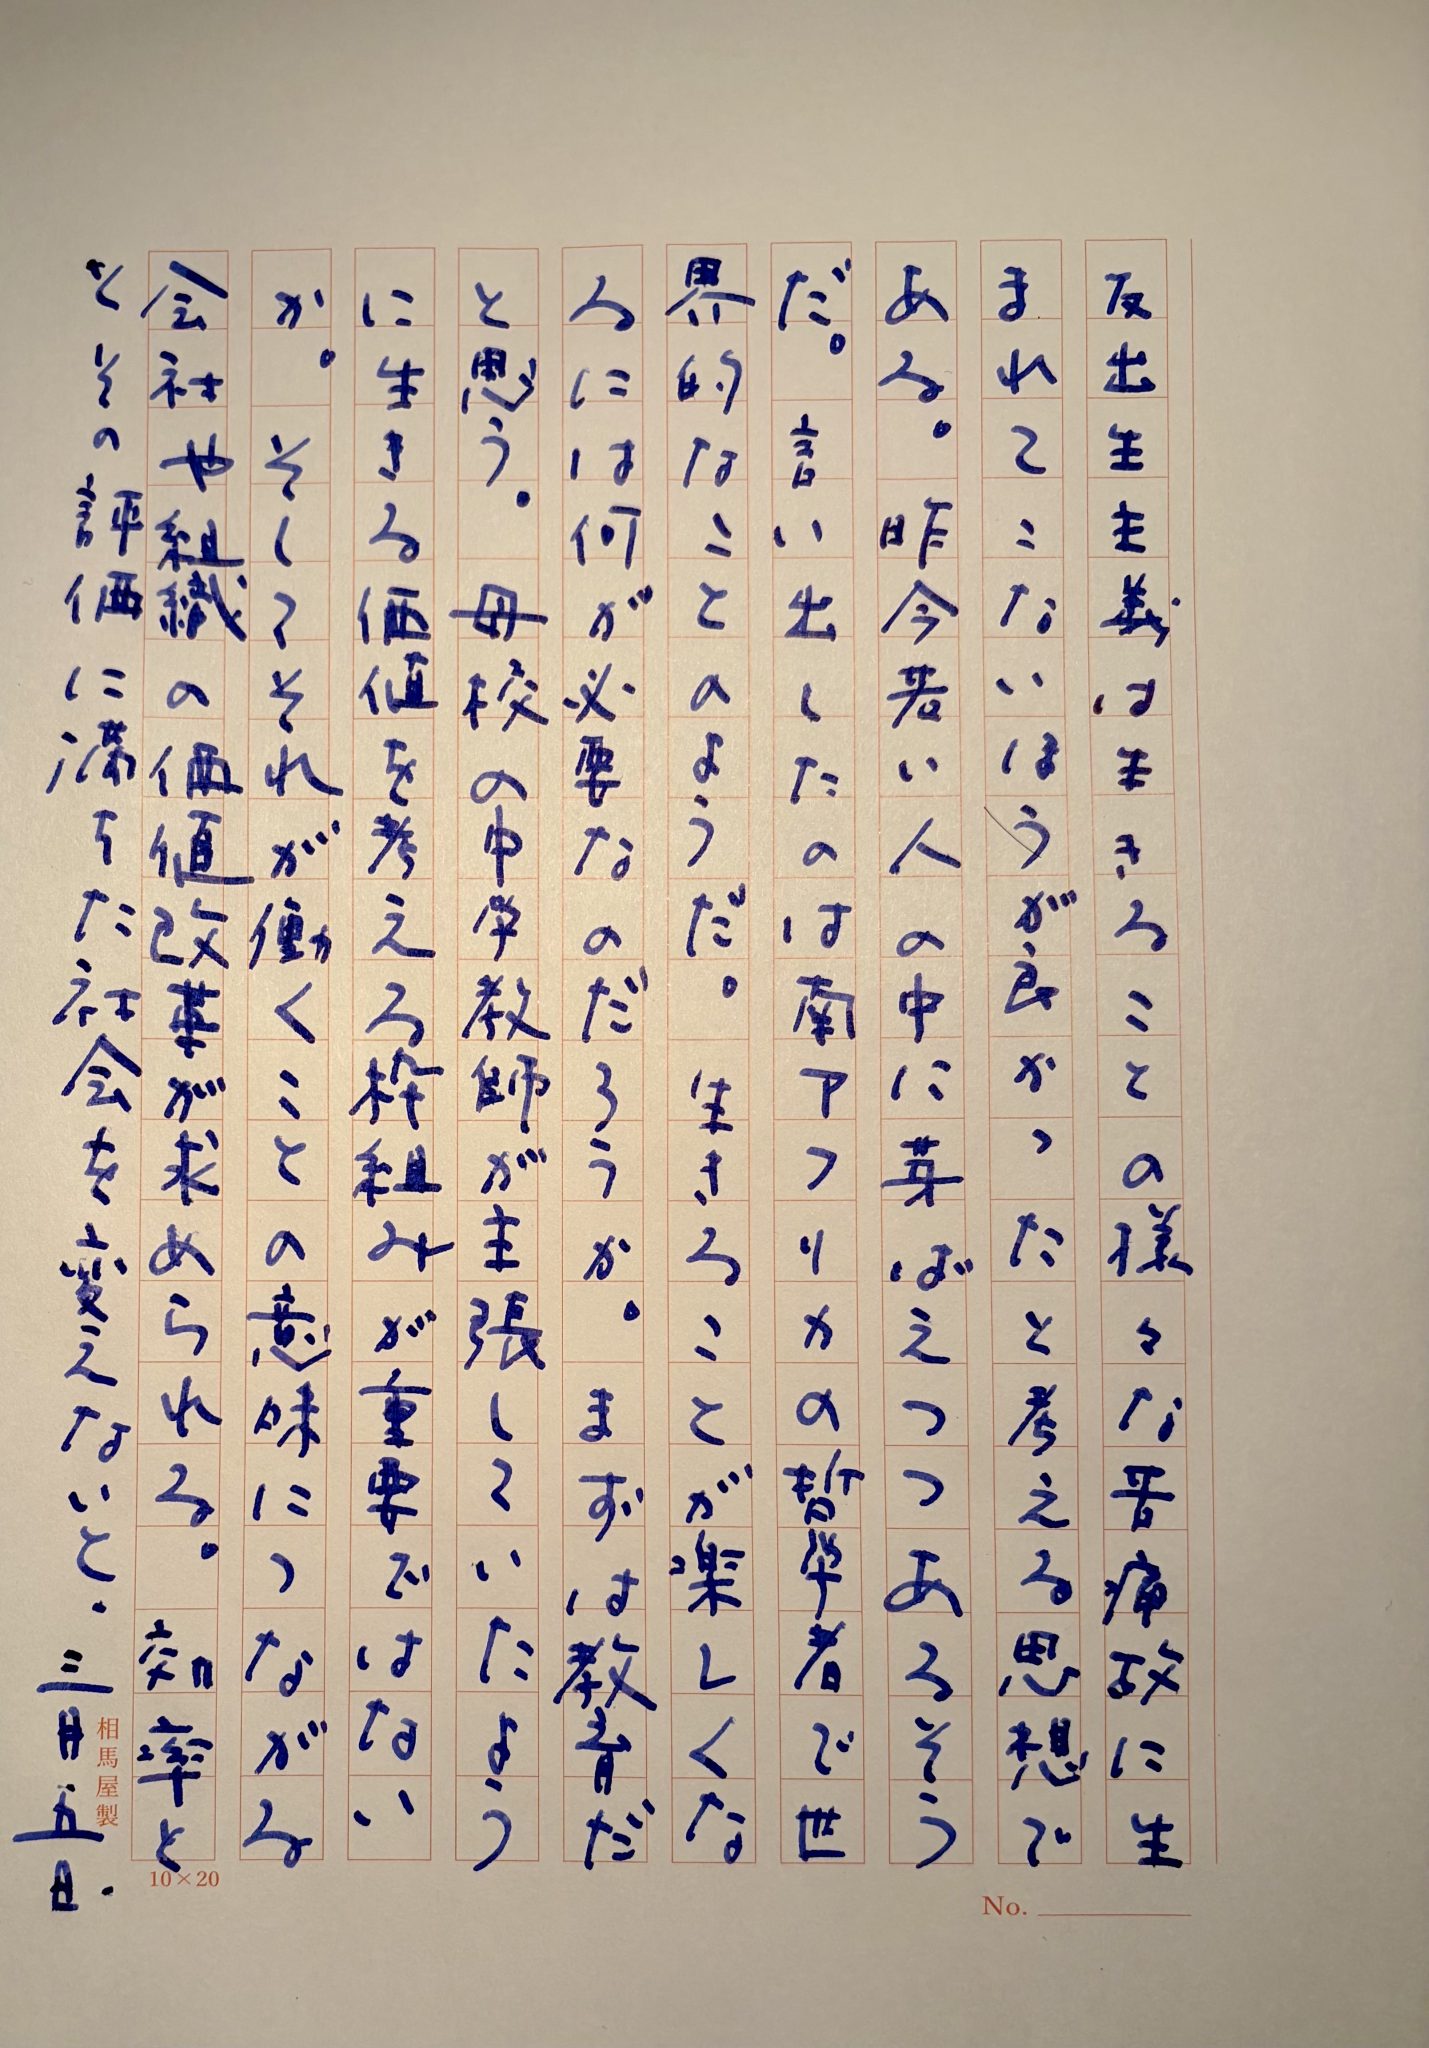 反出生主義は生きることの様々な苦痛故に生
まれてこないほうが良かったと考える思想で
ある。昨今若い人の中に芽ばえつつあるそう
だ。言い出したのは南アフリカの哲学者で世
界的なことのようだ。生きることが楽しくな
るには何が必要なのだろうか。まずは教育だ
と思う。母校の中学教師が主張していたよう
に生きる価値を考える枠組みが重要ではない
か。そしてそれが働くことの意味につながる
会社や組織の価値改革が求められる。効率と
その評価に満ちた社会を変えないと。三月五日.
相馬屋製
10×20
No.